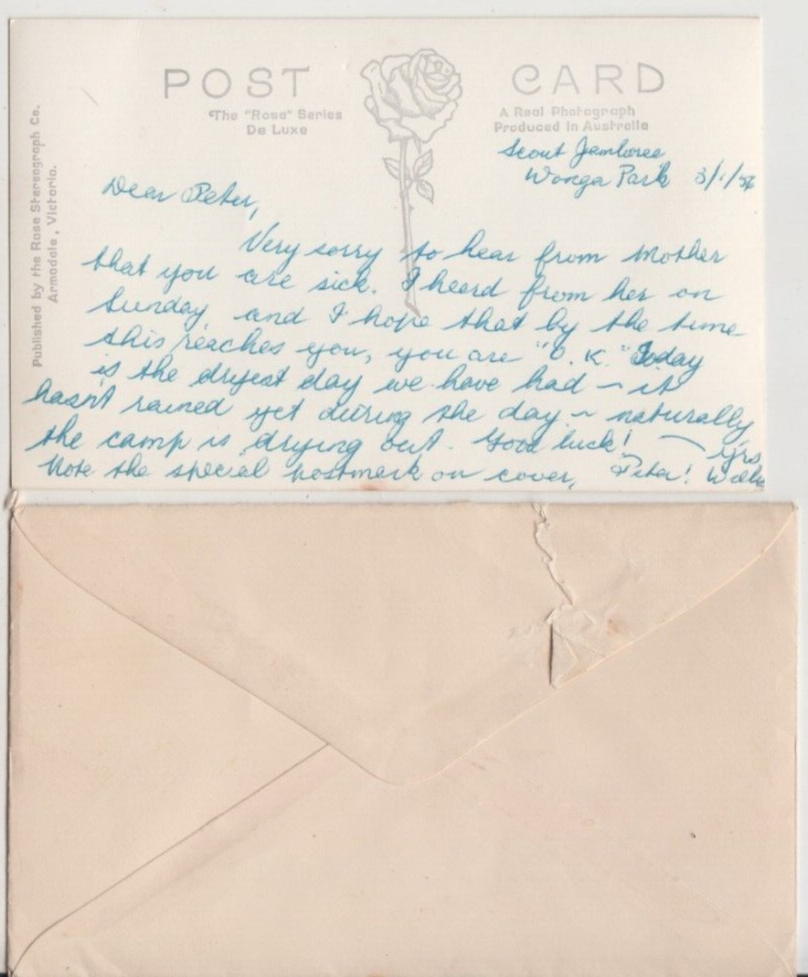 POST CARD
The "Rose" Series
De Luxe
A Real Photograph
Produced in Australia
Published by the Rose Stereograph Co.
Armadale, Victoria.
Scout Jamboree
Wonga Park 3/1/56
Dear Peter,
Very sorry to hear from Mother
that you are sick. I heard from her on
Sunday and I hope that by the time
this reaches you, you are "O.K." Today
is the dryest day we have had ~ it
hasn't rained yet during the day ~ naturally
the camp is drying out. Good luck! — Yrs
Note the special postmark on cover, Peter!